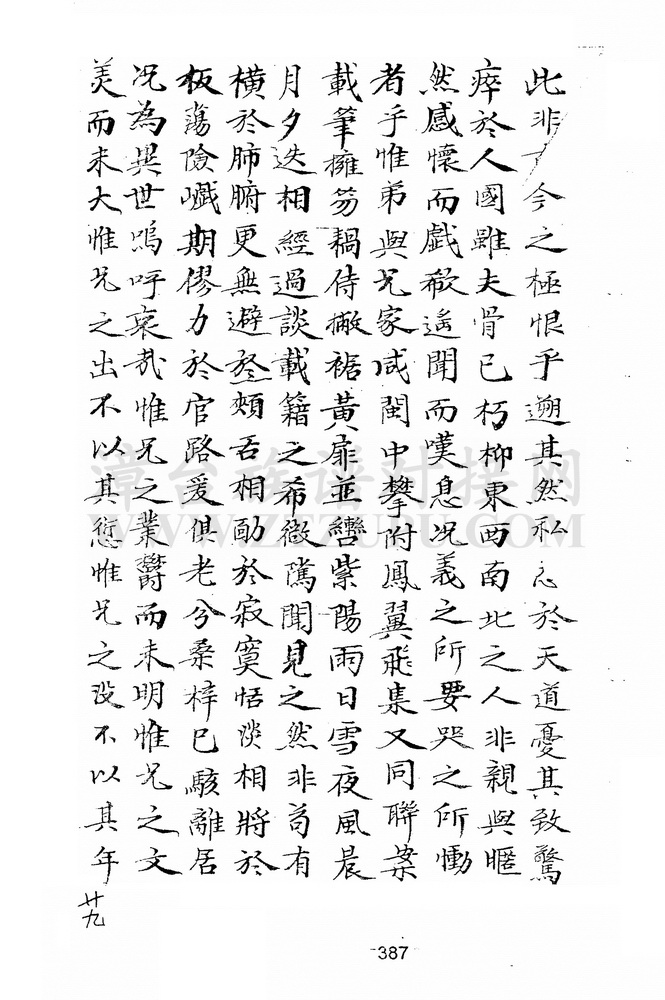 此非古今之極恨乎遡其然私忘於天道憂其致驚
瘁於人國雖夫骨已朽抑東西南北之人非親與暱
然感懷而戱欷遙聞而嘆息况義之所要哭之所慟
者乎惟弟與兄家咸閩中攀附鳳翼飛集又同聯案
載筆擁笏耦侍撇裾黄扉並轡紫陽雨日雪夜風晨
月夕迭相經過談載籍之希微隲聞見之然非苟有
橫於肺腑更無避於頰舌相勖於寂寞恬淡相將於
板蕩險巇期僇力於官路爰俱老兮桑梓已駭離居
况為異世嗚呼哀哉惟兄之業欝而未明惟兄之文
美而未大惟兄之出不以其愆惟兄之歿不以其年
廿九
387
漳台族譜對接网
WWW.ZTZUPU.COM